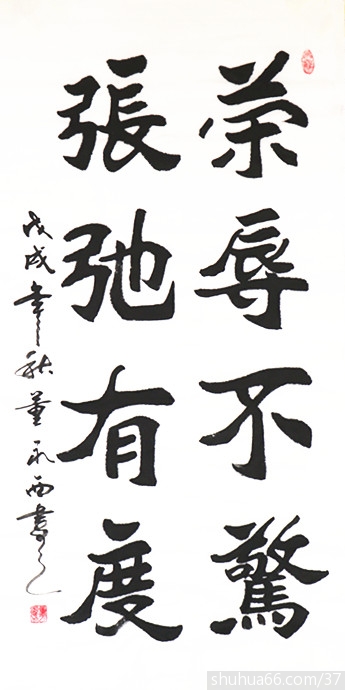 荣辱不驚
張弛有度
戊戌年秋董永西書之
shuhua66.com/37